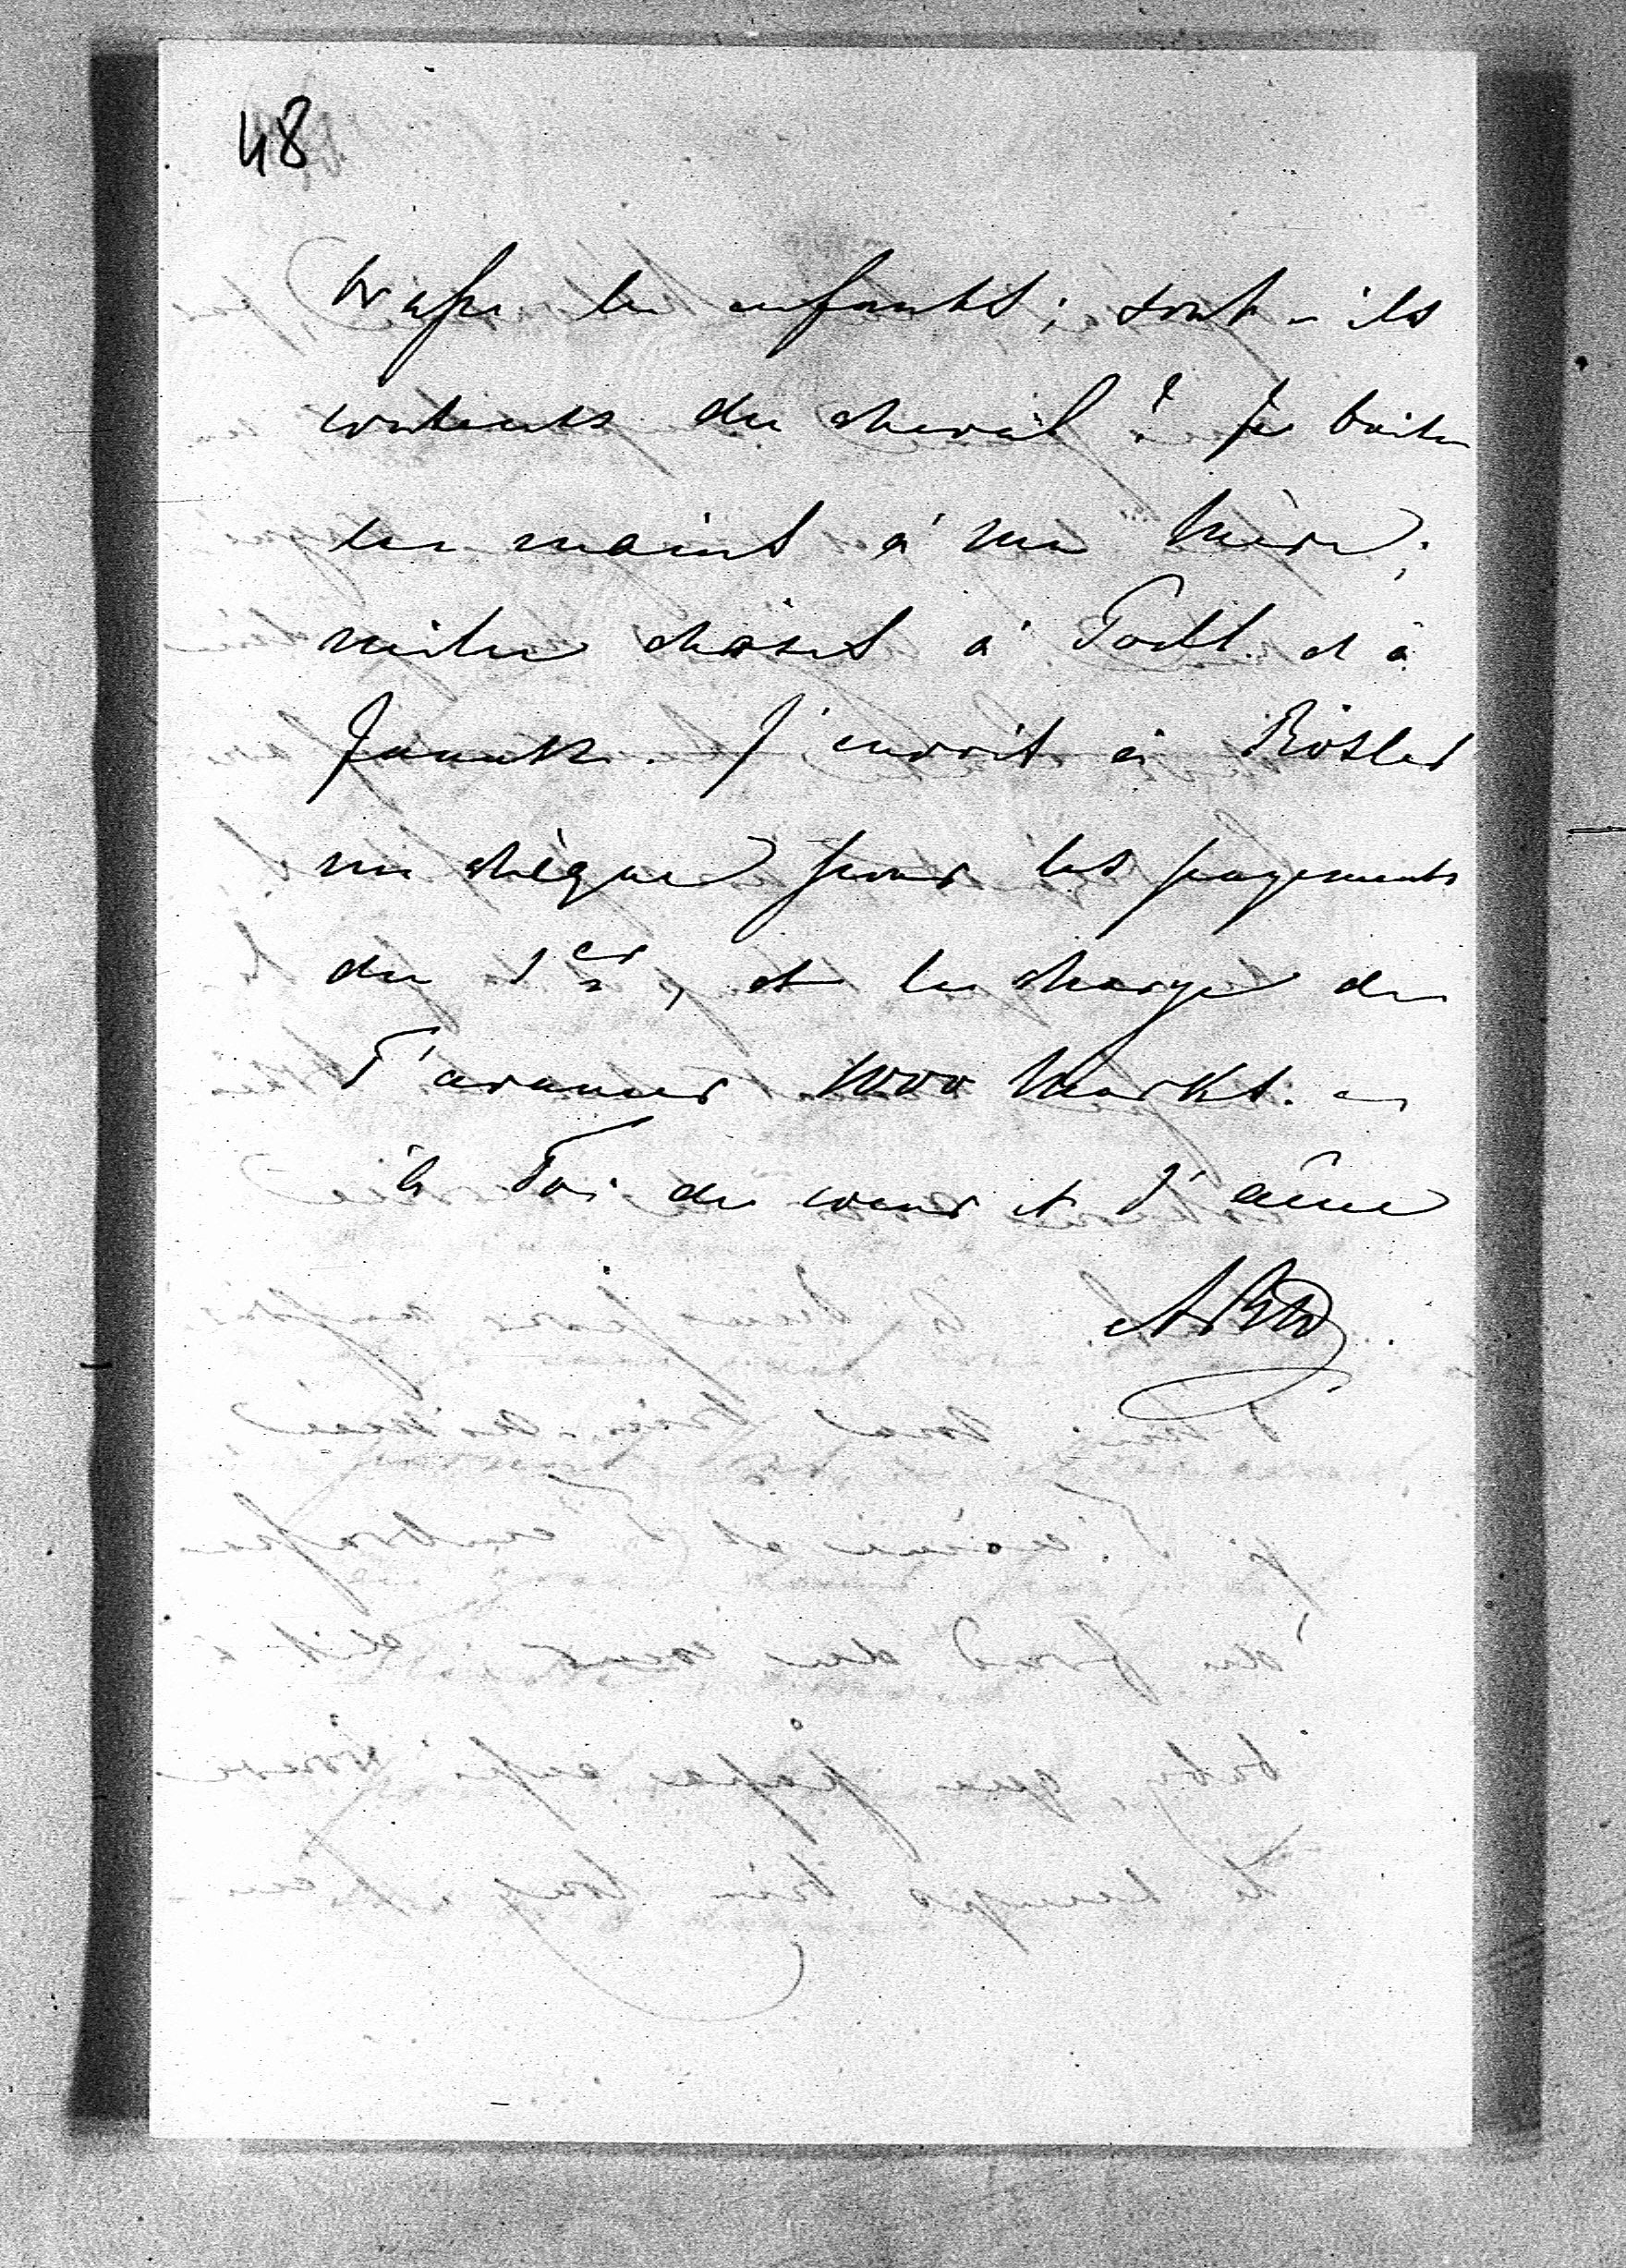 48
brasse les enfants; sont-ils
contents du cheval? Je baise
les mains à ma Mère;
milles choses à Todt. et à
J'envois à Rösler
un chèque pour les payements
du 1er, et le charge de
T'avancer 1000 Marks. -
à Toi de cœur et d'âme